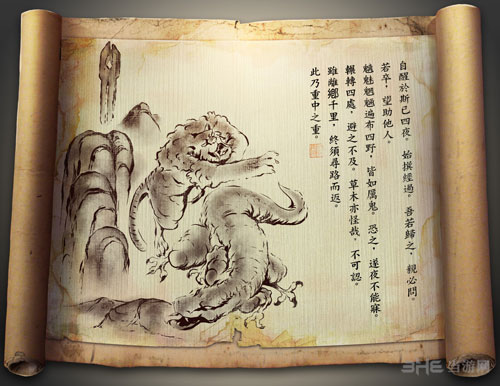 自醒於斯已四夜。始撰經過。吾若歸之，親必問。
若卒，望助他人。
魑魅魍魎遍布四野，皆如厲鬼。恐之，遂夜不能寐。
輾轉四處，避之不及。草木亦怪哉，不可認。
雖離鄉千里，終須尋路而返。
此乃重中之重。
3HE 当游网